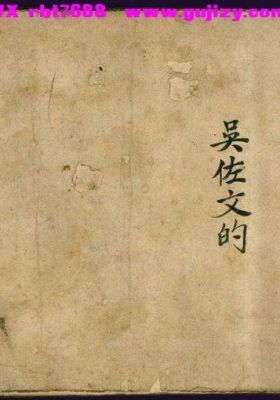 rbt7688 www.gujizy.com
吳佐文的